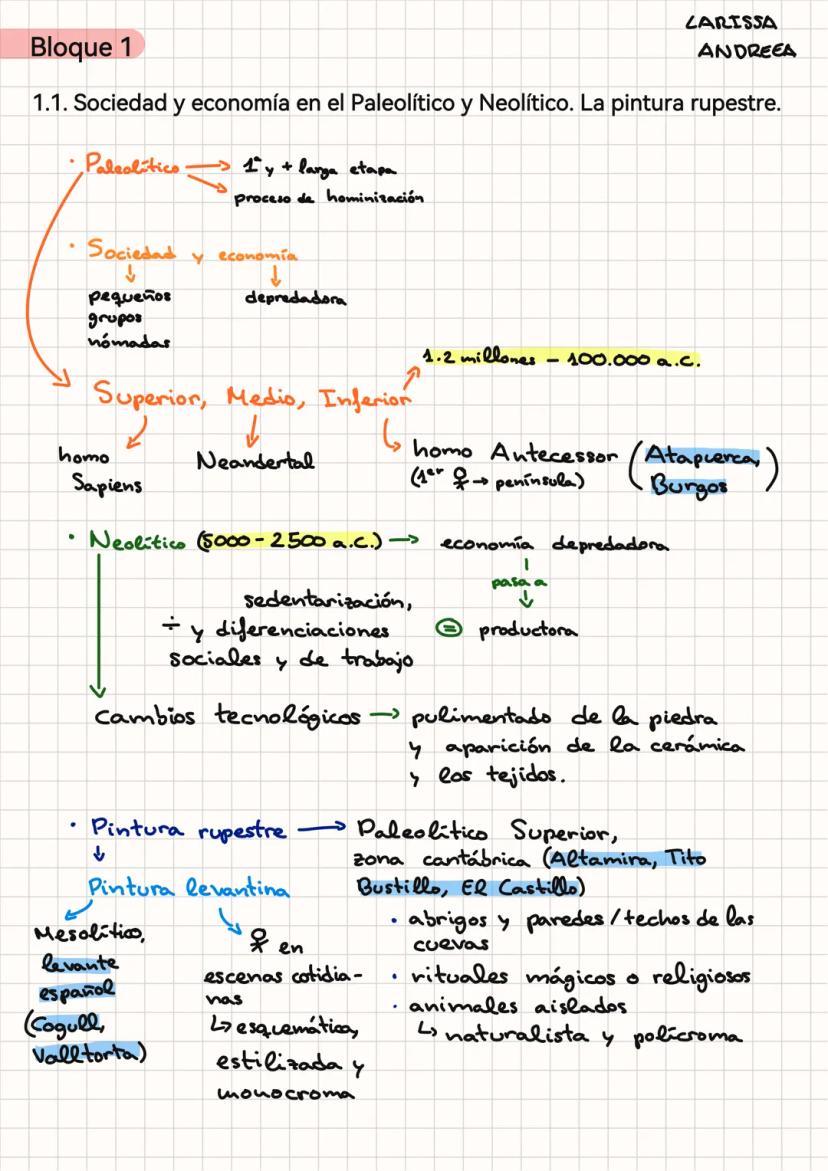 LARISSA
ANDREEA
Bloque 1
1.1. Sociedad y economía en el Paleolítico y Neolítico. La pintura rupestre.
· Paleolítico → 1ª y + larga etapa
→ proceso de hominización
· Sociedad y economía
↓ ↓
pequeños depredadora
grupos
nómadas
1.2 millones - 100.000 a.C.
Superior, Medio, Inferior
homo Sapiens
Neandertal
homo Antecessor (Atapuerca, Burgos)
(1er 웃 → península)
· Neolítico (5000 - 2500 a.C.) → economía depredadora
pasa a
↓
sedentarización,
÷ y diferenciaciones = productora
sociales y de trabajo
Cambios tecnológicos → pulimentado de la piedra
y aparición de la cerámica
y los tejidos.
· Pintura rupestre → Paleolítico Superior,
zona cantábrica (Altamira, Tito
Bustillo, El Castillo)
• abrigos y paredes/techos de las
cuevas
• rituales mágicos o religiosos
· animales aislados
↳ naturalista y polícroma
↓
Pintura levantina
Mesolítico,
levante
español
(Cogull,
Valltorta)
웃 en
escenas cotidia-
nas
↳ esquemática,
estilizada y
monocroma